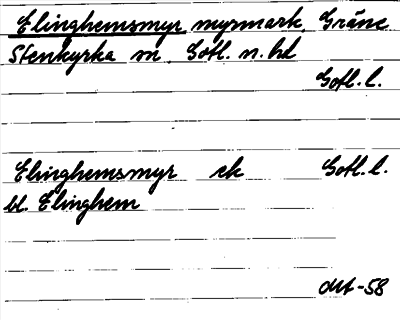 Elinghemsmyr myrmark, Gräne
Stenkyrka sn, Gotl. n. hd
Gotl. l.
Elinghemsmyr ek Gotl. l.
bl. Elinghem
-58